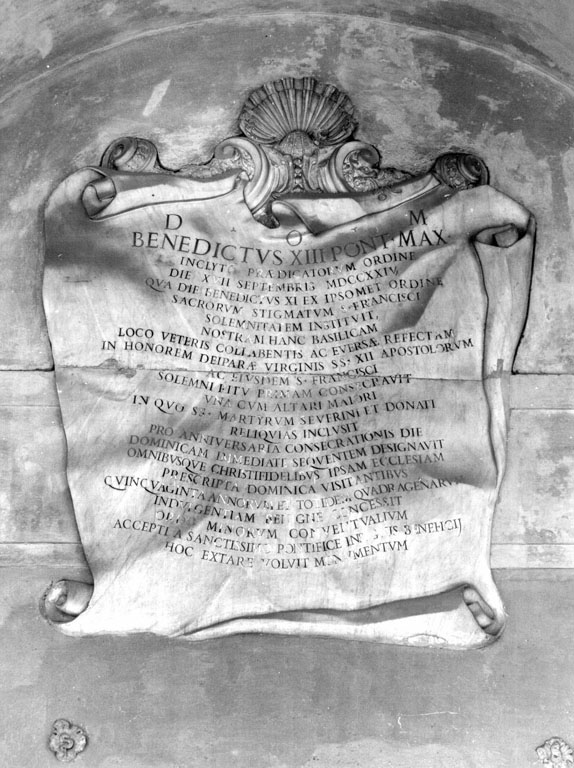 D O M
BENEDICTVS XIII PONT MAX
INCLYTO PRÆDICATORVM ORDINE
DIE XVII SEPTEMBRIS MDCCXXIV
QVA DIE BENEDICTVS XI EX IPSOMET ORDINE
SACRORVM STIGMATVM S· FRANCISCI
SOLEMNITATEM INSTITVIT
NOSTRAM HANC BASILICAM
LOCO VETERIS COLLABENTIS AC EVERSÆ REFECTAM
IN HONOREM DEIPARÆ VIRGINIS SS· XII APOSTOLORVM
AC EIVSDEM S· FRANCISCI
SOLEMNI RITV PRIMAM CONSECRAVIT
VNA CVM ALTARI MAIORI
IN QVO SS· MARTYRVM SEVERINI ET DONATI
RELIQVIAS INCLVSIT
PRO ANNIVERSARIA CONSECRATIONIS DIE
DOMINICAM IMMEDIATE SEQVENTEM DESIGNAVIT
OMNIBVSQVE CHRISTIFIDELIBVS IPSAM ECCLESIAM
PRESCRIPTA DOMINICA VISITANTIBVS
QVINQVAGINTA ANNORVM ET TOTIDEM QVADRAGENARVM
INDVLGENTIAM BENIGNE CONCESSIT
MINORVM CONVENTVALIVM
ACCEPTI A SANCTISSIMO PONTIFICE BENEFICIJ
HOC EXTARE VOLVIT MONVMENTVM